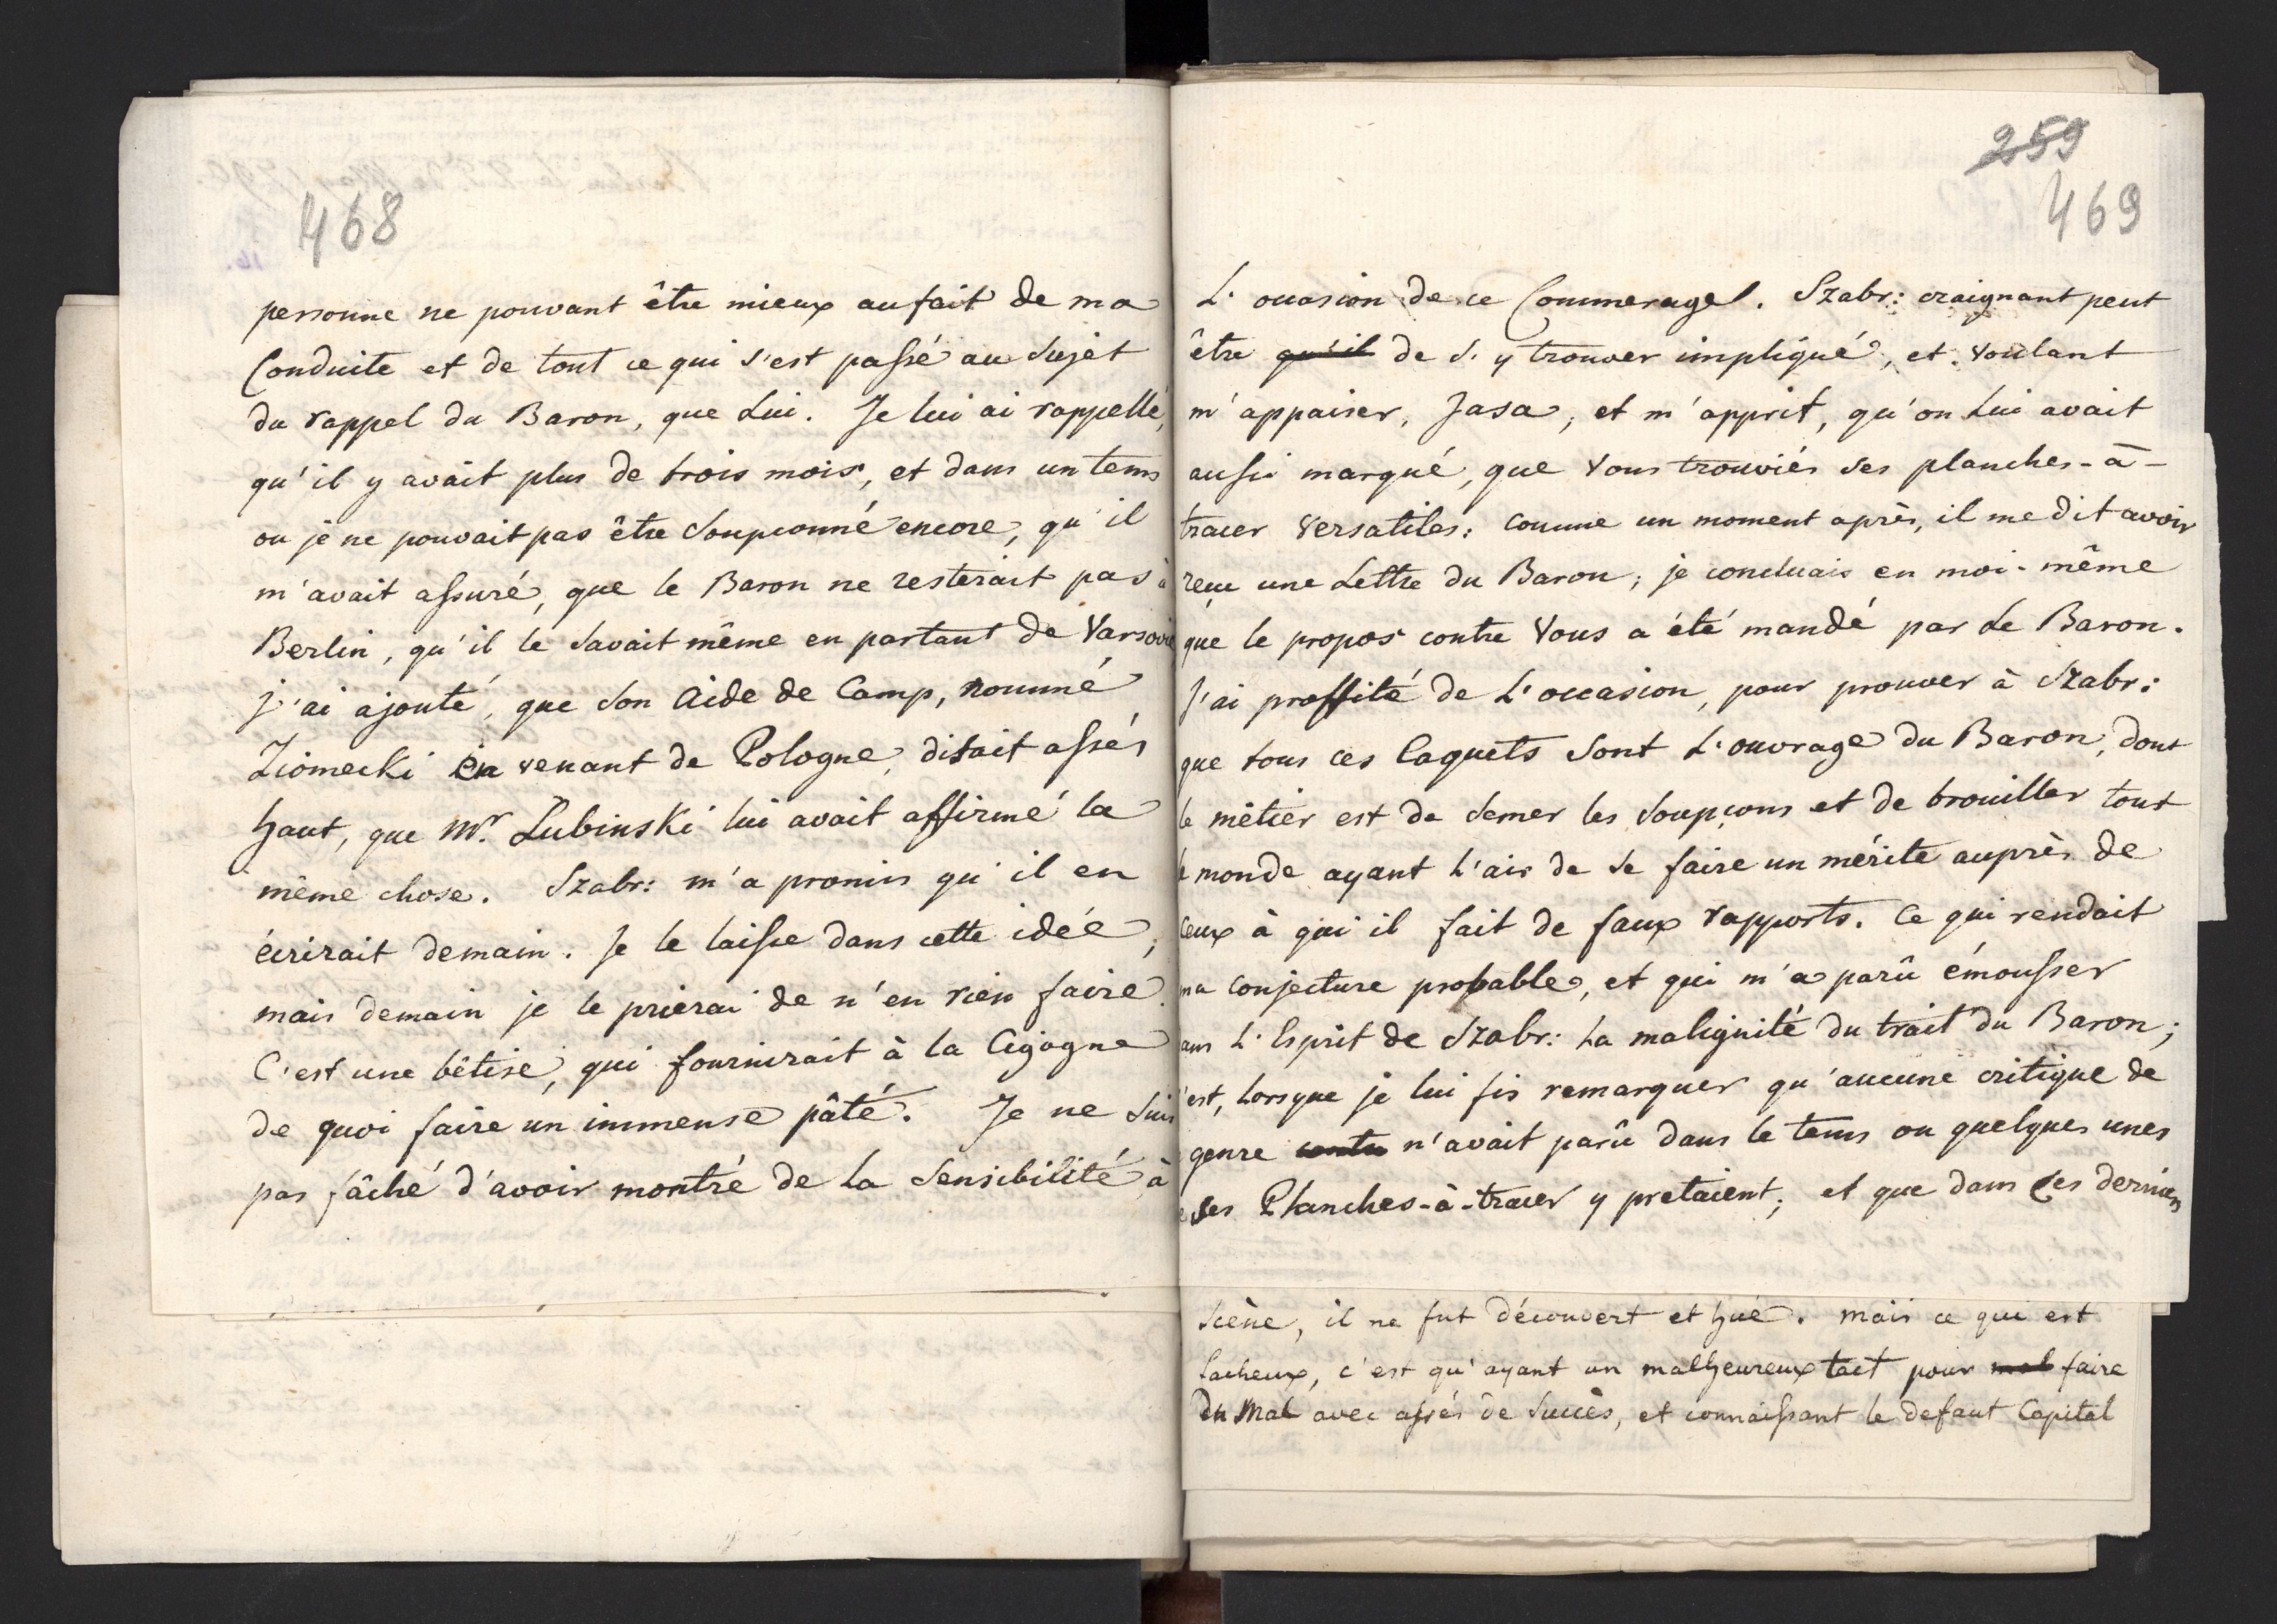 468
personne ne pouvant être mieux au fait de ma
Conduite et de tout ce qui s'est passé au sujet
du rappel du Baron, que Lui. Je lui ai rappellé,
qu'il y avait plus de trois mois, et dans un tems
ou je ne pouvait pas être soupconné encore, qu'il
m'avait assuré, que le Baron ne resterait pas à
Berlin, qu'il le savait même en partant de Varsovie
j'ai ajouté, que son Aide de Camp, nommé
Ziomecki en venant de Pologne, disait assés
haut, que Mr. Lubinski lui avait affirmé la
même chose. Szabr: m'a promis qu'il en
écrirait demain. Je le laisse dans cette idée,
mais demain je le prierai de n'en rien faire.
C'est une bêtise, qui fournirait à la Cigogne
de quoi faire un immense pâté. Je ne suis
pas fâché d'avoir montré de la sensibilité à
259
469
L'occasion de ce Commerage. Szabr: craignant peut
être qu'il de s'y trouver impliqué, et voulant
m'appaiser, jasa, et m'apprit, qu'on Lui avait
aussi marqué, que Vous trouviés ses planches-à-
tracer versatiles: comme un moment après, il me dit avoir
reçu une Lettre du Baron, je concluais en moi-même
que le propos contre Vous a été mandé par Le Baron.
J'ai proffité de L'occasion, pour prouver à Szabr:
que tous ces Caquets sont L'ouvrage du Baron, dont
le métier est de semer les soupçons et de brouiller tout
le monde ayant L'air de se faire un mérite auprès de
Ceux à qui il fait de faux rapports. Ce qui rendait
ma conjecture probable, et qui m'a parû émousser
dans L'Esprit de Szabr: La malignité du trait du Baron;
c'est, Lorsque je lui fis remarquer qu'aucune critique de
genre contre n'avait parû dans le tems ou quelques unes
de ses Planches-à-tracer y pretaient; et que dans ses derniers
scène, il ne fut découvert et hué. Mais ce qui est
facheux, c'est qu'ayant un malheureux tact pour mal faire
du Mal avec assés de succès, et connaissant le defaut Capital